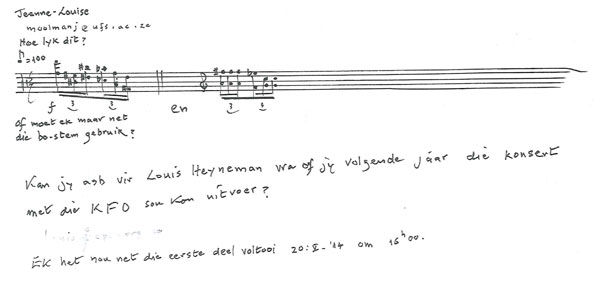 Jeanne-Louise
moolmanj@ufs.ac.za
Hoe lyk dit?
♪=100
3 3 3 6
f en
of moet ek maar net
die bo-stem gebruik?
Kan jy asb vir Louis Heyneman vra of jy volgende jáár die konsert
met die KFO sou kon uitvoer?
EK het nou net die eerste deel voltooi 20:X-'14 om 16h00.